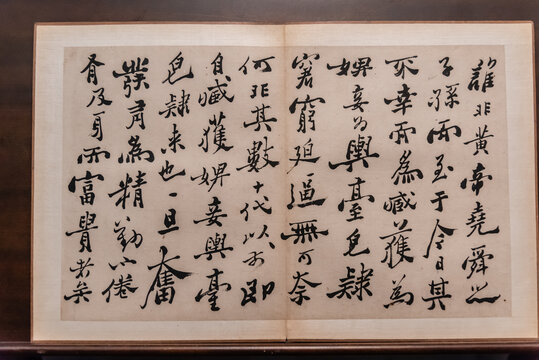 誰非黄帝堯舜之
子孫而至于今日其
不幸而為臧獲為
婢妾為輿臺皂隸
窘窮迫逼無可奈
何非其數十代以前即
自臧獲婢妾輿臺
皂隸来也一旦奮
發有為精勤不倦
有及身而富貴者矣